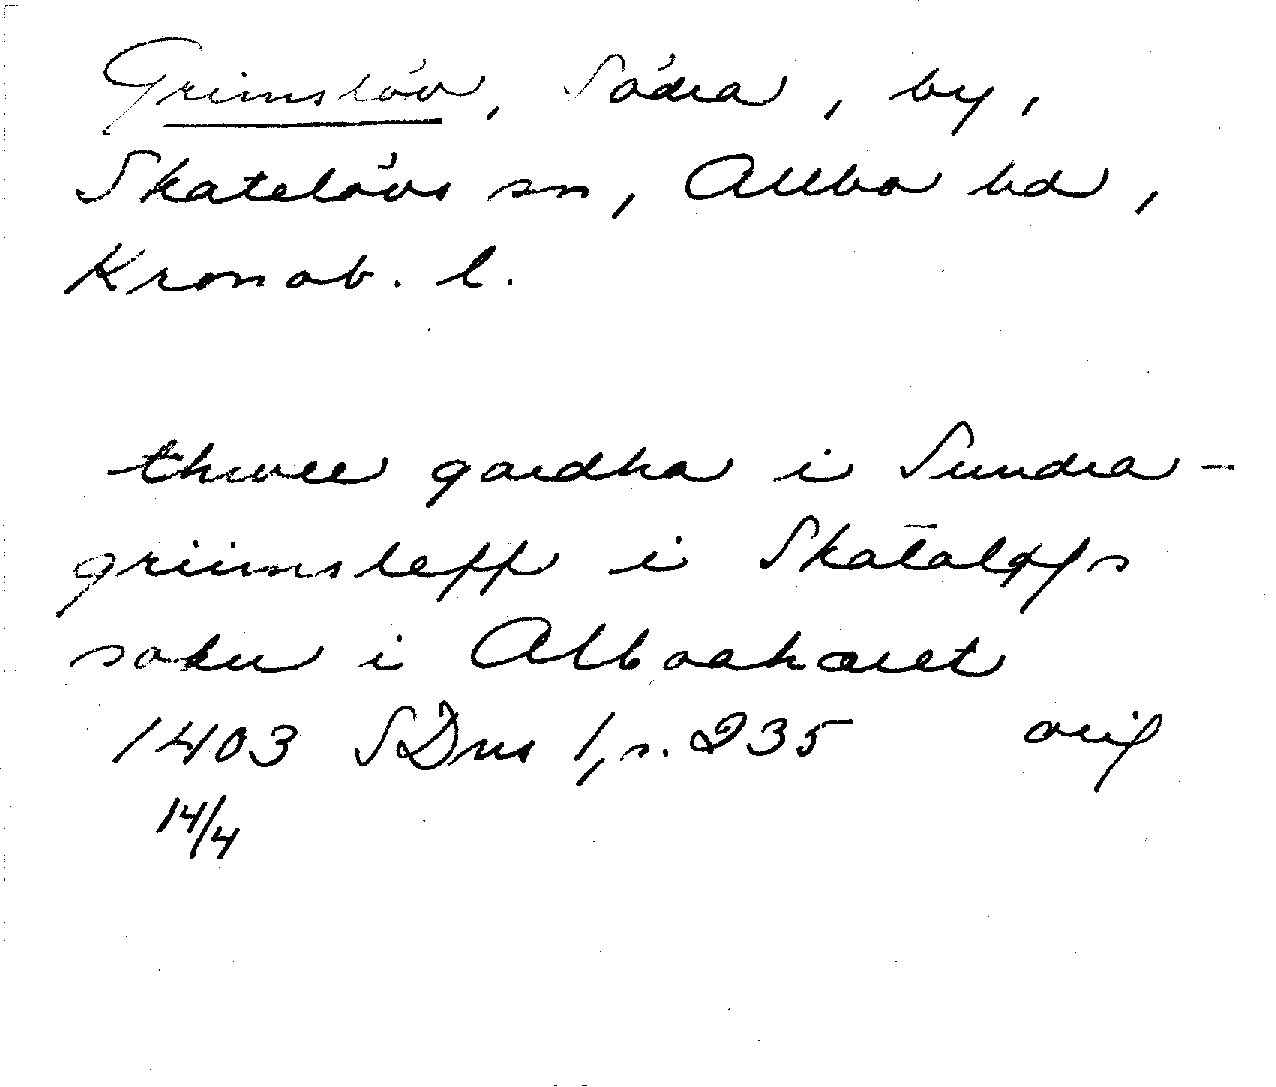 Grimslöv, Södra, by,
Skatelövs sn, Allbo hd,
Kronob. l.
thwee gardha i Sundra-
griimsleff i Skatalöffs
sokn i Alboahæret
1403 SDns 1, s. 235 orig
14/4